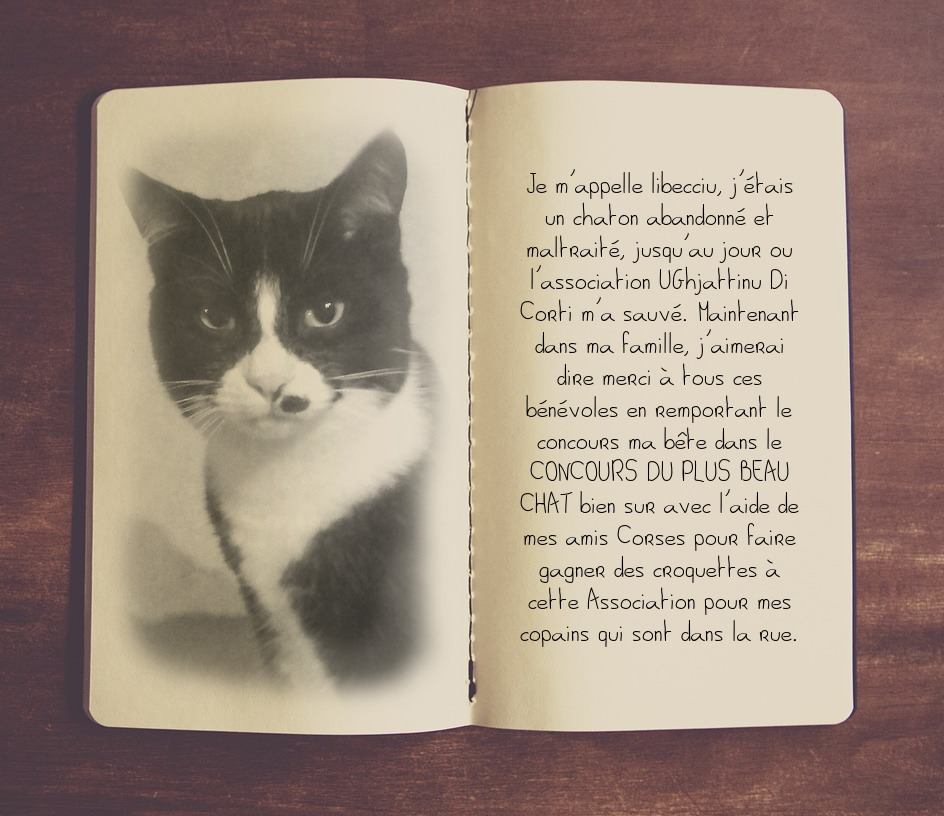 Je m'appelle libecciu, j'étais
un chaton abandonné et
maltraité, jusqu'au jour ou
l'association UGhjattinu Di
Corti m'a sauvé. Maintenant
dans ma famille, j'aimerai
dire merci à tous ces
bénévoles en remportant le
concours ma bête dans le
CONCOURS DU PLUS BEAU
CHAT bien sur avec l'aide de
mes amis Corses pour faire
gagner des croquettes à
cette Association pour mes
copains qui sont dans la rue.